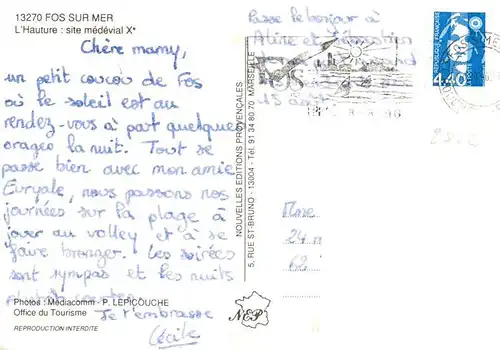 13270 FOS SUR MER
L'Hauture : site médévial X*
Chère mamy,
un petit coucou de Fos
où le soleil est au
rendez-vous à part quelques
orages la nuit. Tout se
passe bien avec mon amie
Euryale, nous passons nos
journées sur la plage à
jouer au volley et à se
faire bronzer. Les soirées
sont sympas et les nuits
Je t'embrasse
Cécile
Photos : Médiacomm - P. LEPICOUCHE
Office du Tourisme
REPRODUCTION INTERDITE
NOUVELLES EDITIONS PROVENÇALES
5, RUE ST-BRUNO - 13004 - Tél. 91 34 80 70 MARSEILLE
NEP
Passe le bonjour à
Aline et
FOS
RÉPUBLIQUE FRANÇAISE
4,40
Mme
24
62